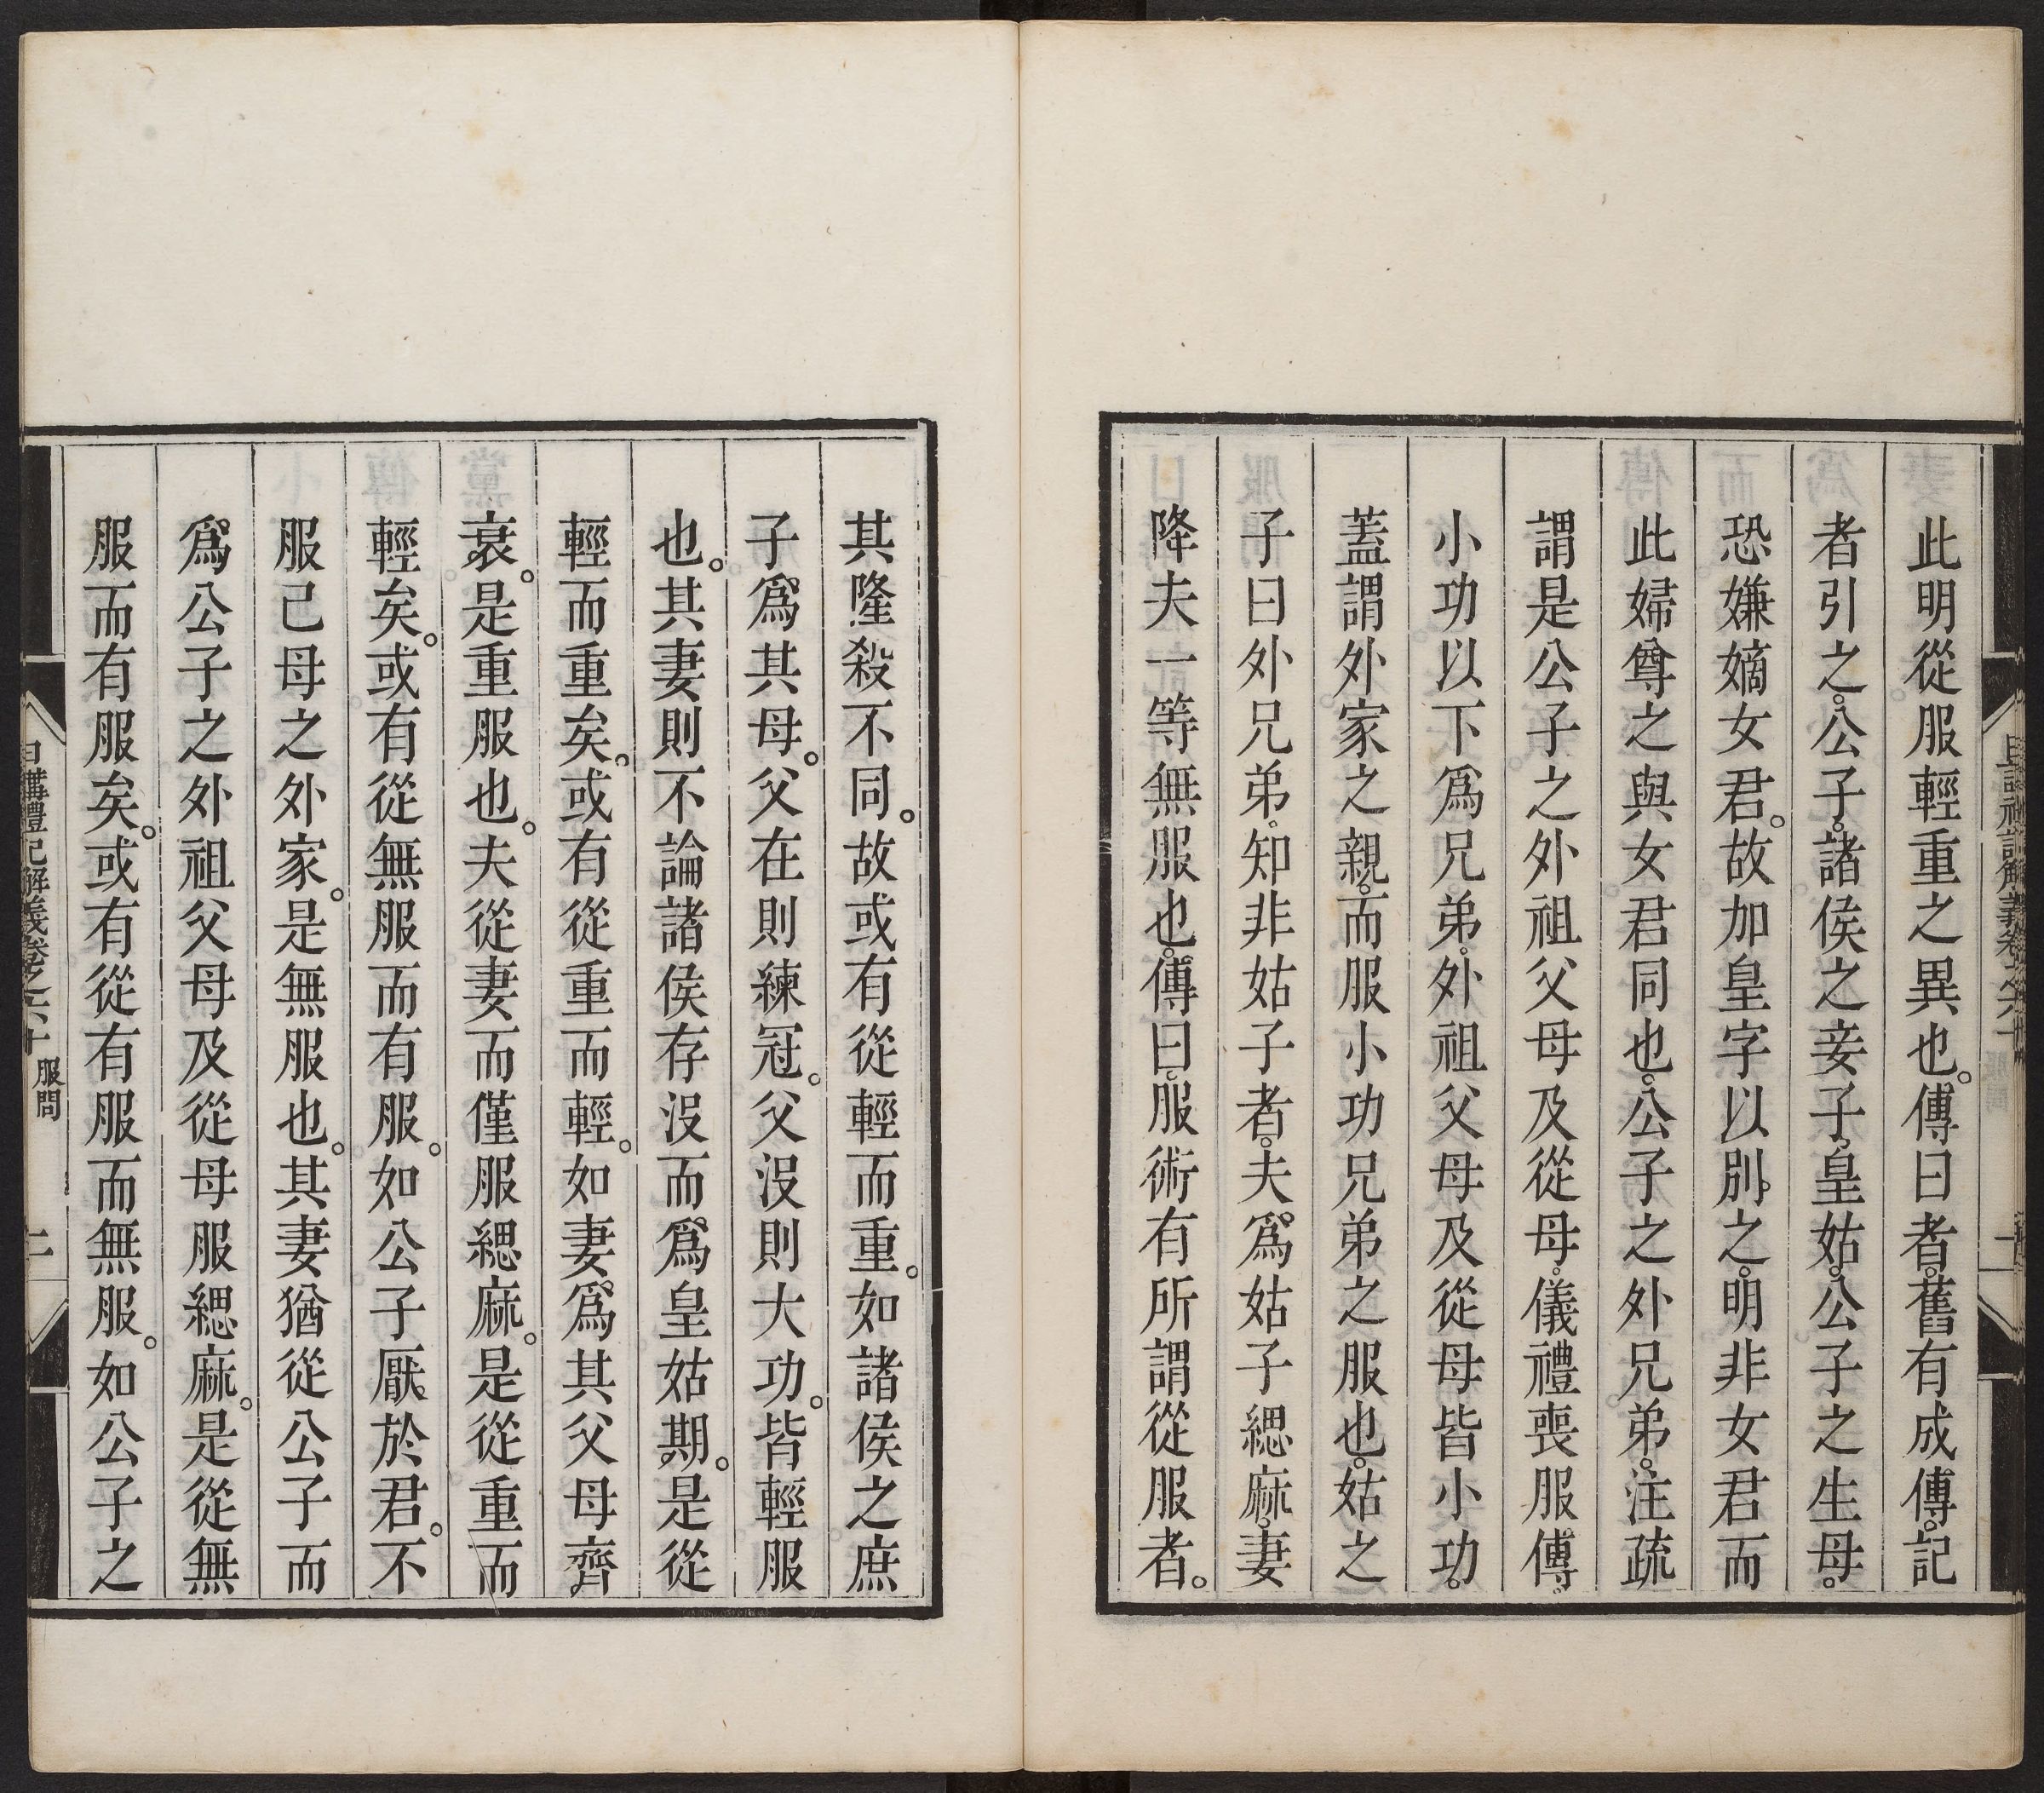 此明從服輕重之異也。傳曰者。舊有成傳。記
者引之。公子。諸侯之妾子。皇姑。公子之生母。
恐嫌嫡女君。故加皇字以別之。明非女君而
此婦尊之與女君同也。公子之外兄弟。注疏
謂是公子之外祖父母及從母。儀禮喪服傳。
小功以下爲兄弟。外祖父母及從母皆小功。
蓋謂外家之親。而服小功兄弟之服也。姑之
子曰外兄弟。知非姑子者。夫爲姑子緦麻。妻
降夫一等無服也。傳曰。服術有所謂從服者。
其隆殺不同。故或有從輕而重。如諸侯之庶
子爲其母。父在則練冠。父沒則大功。皆輕服
也。其妻則不論諸侯存沒而爲皇姑期。是從
輕而重矣。或有從重而輕。如妻爲其父母齊
衰。是重服也。夫從妻而僅服緦麻。是從重而
輕矣。或有從無服而有服。如公子厭於君。不
服己母之外家。是無服也。其妻猶從公子而
爲公子之外祖父母及從母服緦麻。是從無
服而有服矣。或有從有服而無服。如公子之
日講禮記解義卷之六十 服問 二